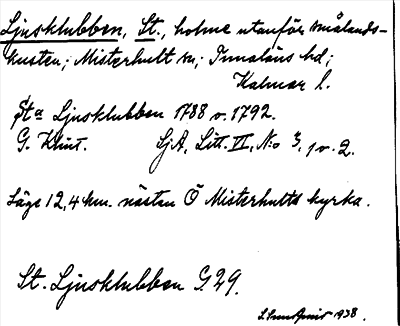 Ljusklubben, St., holme utanför smålands-
kusten; Misterhult sn; Tunaläns hd;
Kalmar l.
Sta Ljusklubben 1788 o. 1792.
G. Klint. SjA, Litt. VI, N:o 3, 1 o. 2.
Läge 12,4 km. nästan Ö Misterhults kyrka.
St. Ljusklubben G.29.
1938.